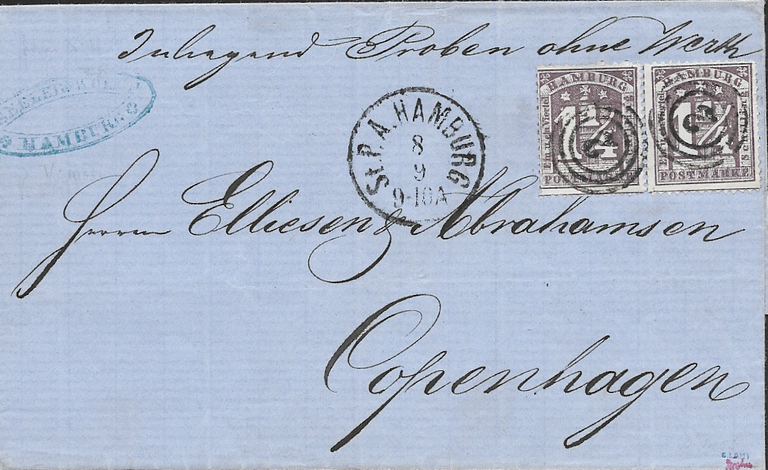 Inliegend Proben ohne Werth
HAMBURG
1¼
POSTMARKE
HAMBURG
1¼
POSTMARKE
HAMBURG
St.P.A. HAMBURG
8
9
9-10A
Herrn Elliesen & Abrahamsen
Copenhagen